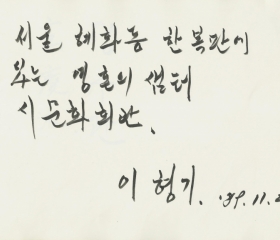 서울 혜화동 한복판에
있는 영혼의 샘터
시문화회관.
이 형기. '89. 11. 2